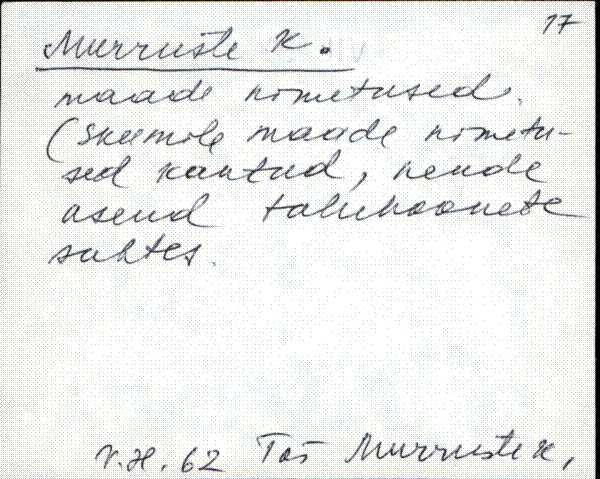 17
Murruste K.
maade nimetused.
(Skeemile maade nimetu-
sed kantud, nende
asend taluhoonete
suhtes.
V.H. 62 Tõs Murruste K,